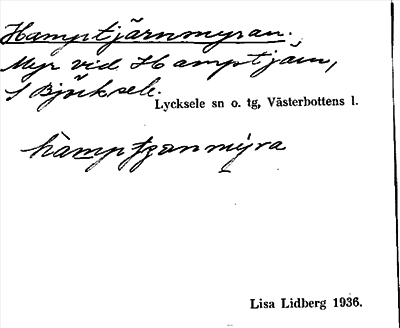 Hamptjärnmyran.
Myr vid Hamptjärn,
S Björksele.
Lycksele sn o. tg, Västerbottens l.
hàmptȷ̣ənmy̆ra
Lisa Lidberg 1936.